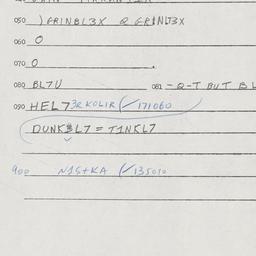 050 ) GRINBL3X Q GRINL73X
060 O
070 O
080 BL7U 081 - Q-T BUT BL
090 HEL73R KOLIR (/171060
DUNKBL7 = T1NKL7
900 N1S+KA (/135010